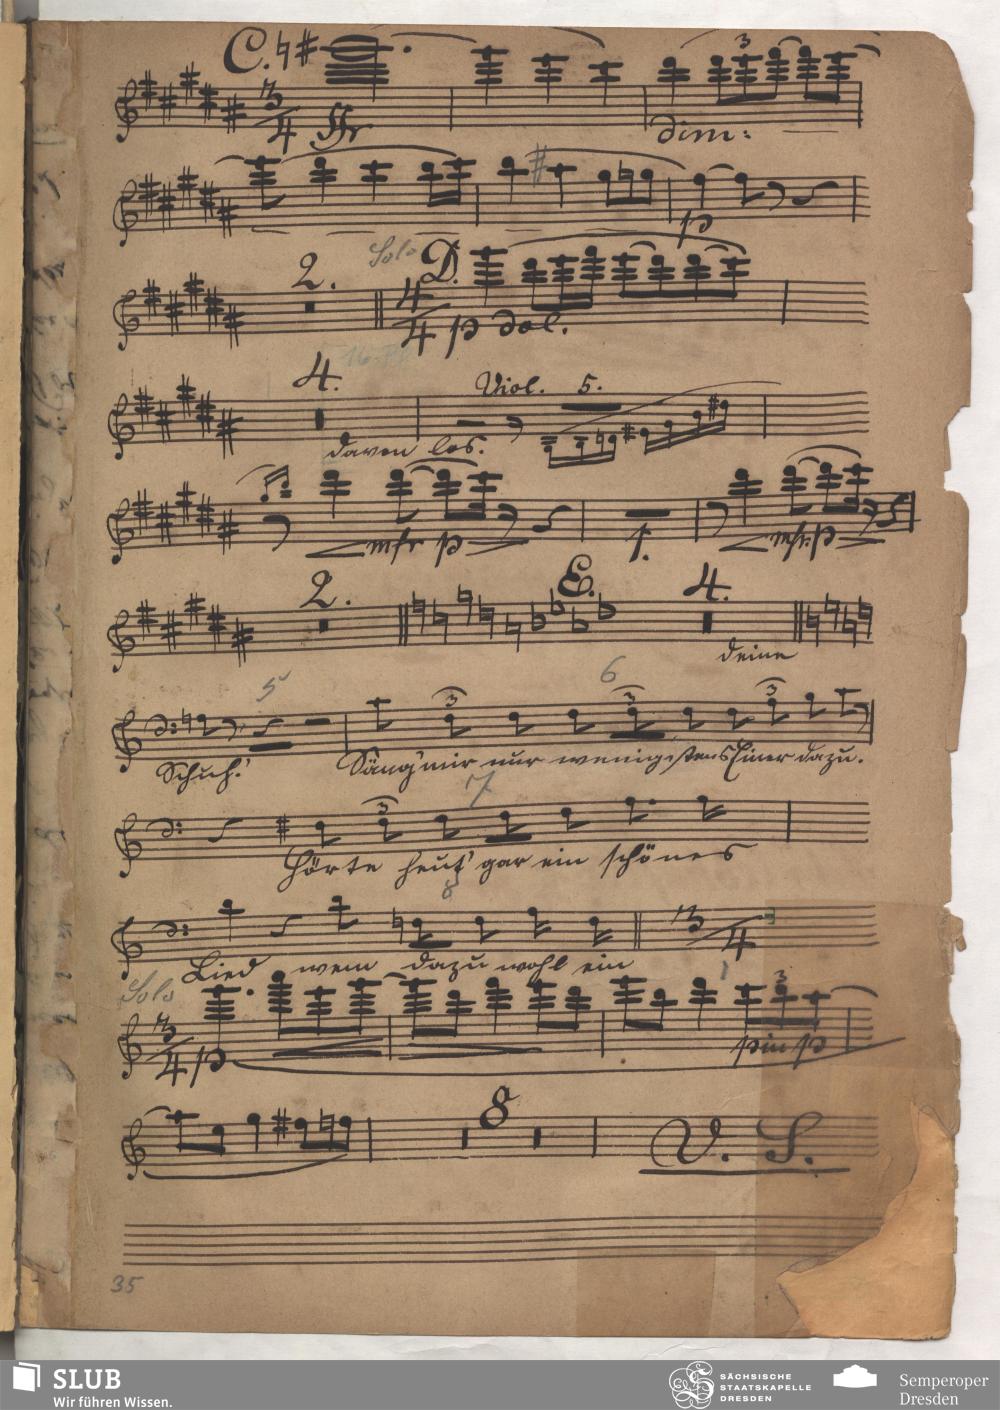 C.
3/4 ffr dim:
3
p
Solo
2. D.
4/4 p dol.
4. Viol. 5.
davon los.
mfr p 1. mfr. p
2. E. 4.
deine
5 3 6 3 3
Schuh! Säng' mir nur wenigstens Einer dazu.
3 7
Hörte heut' gar ein schönes
8
Lied wem dazu wohl ein 3/4
Solo 1 3
3/4 p
8 V. S.
35
SLUB
Wir führen Wissen.
SÄCHSISCHE
STAATSKAPELLE
DRESDEN
Semperoper
Dresden